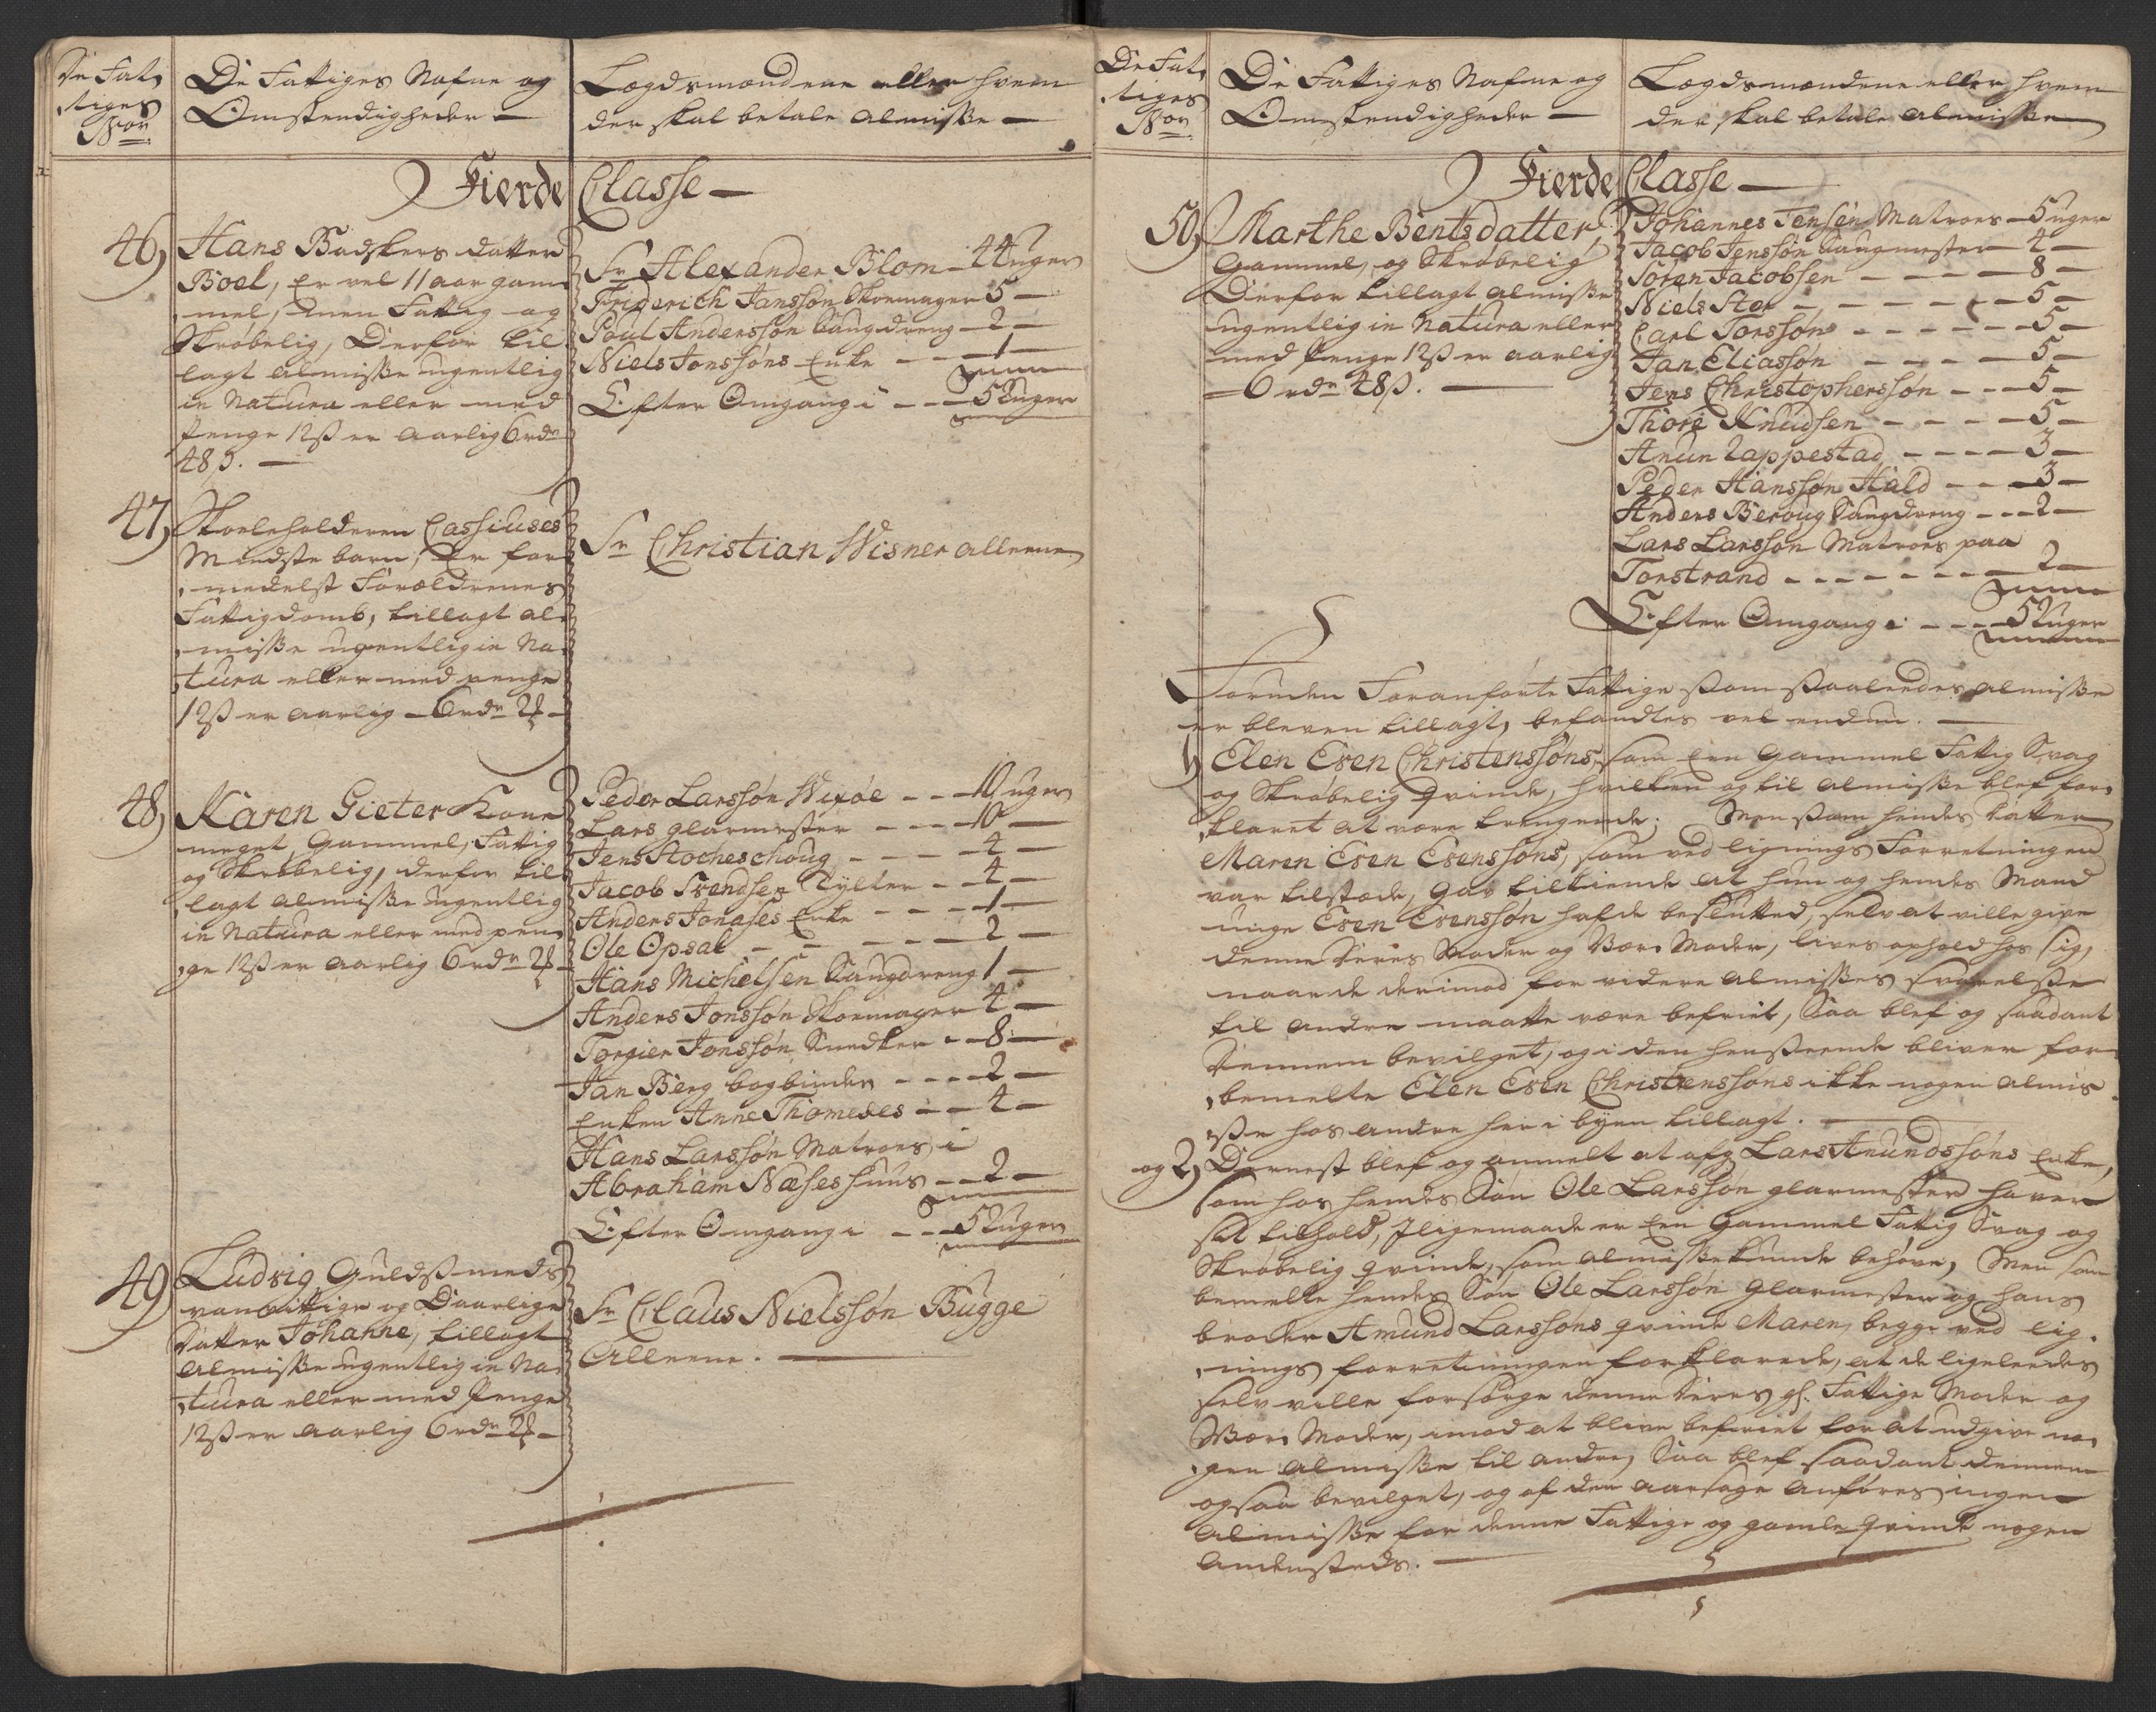 De Fat,
,tiges
Nor.
De Fattiges Nafne og
Omstendigheder —
Lægdsmændene eller hvem
der skal betale Almisse —
Fierde Classe —
46, Hans Badskers datter
Boel, Er vel 11 aar gam,
,mel, Men Fattig og
Skrøbelig, Derfor til,
lagt Almisse ugentlig
in Natura eller med
Penge 12ß er Aarlig 6 rdr
48ß. —
Sr Alexander Blom — 44 uger
Friderich Jansøn Skoemager 5 —
Poul Anderssøn Saugdreng — 2 —
Niels Jonssøns Enke — — 1 —
Efter Omgang i — — 52 uger
47, Skoeleholderen Cassiuses
Mindste barn, Er for,
,medelst Forældrenes
Fattigdomb, tillagt Al,
,misse ugentlig in Na,
,tura eller med penge
12ß er Aarlig — 6 rdr 2
Sr Christian Wisner Alleene
48, Karen Gieter Kone
meget Gammel, Fattig
og Skrøbelig, derfor til,
lagt Almisse Ugentlig
in Natura eller med pen,
,ge 12ß er Aarlig 6 rdr 2
Peder Larssøn Wixøe — — 10 uger
Lars glarmester — — — 10 —
Jens Stocheschoug — — — 4 —
Jacob Svendsen Tylter — — 4 —
Anders Jonases Enke — — — 1 —
Ole Opsal — — — — 2 —
Hans Michelsen Saugdreng 1 —
Anders Jonssøn Skoemager 4 —
Torgier Jonssøn Snedker — — 8 —
Jan Berg bogbinder — — — — 2 —
Enken Anne Thomeses — — 4 —
Hans Larssøn Matroes i
Abraham Næses huus — — 2 —
Efter Omgang i — — 52 uger
49, Ludvig Guldsmeds
vanvittige og Daarlige
Datter Johanne, tillagt
Almisse ugentlig in Na,
,tura eller med Penge
12ß er Aarlig 6 rdr 2
Sr Claus Nielssøn Bugge
Alleene. —
De Fat,
,tiges
Nor.
De Fattiges Nafne og
Omstendigheder —
Lægdsmændene eller hvem
der skal betale Almisse
Fierde Classe —
50, Marthe Bentsdatter,
Gammel, og Skrøbelig
Derfor tillagt Almisse
ugentlig in Natura eller
med Penge 12ß er Aarlig
— 6 rdr 48ß. —
Johannes Jensen Matroes — 5 uger
Jacob Jenssøn Saugmester — 4 —
Søren Jacobsen — — — — 8 —
Niels Stor — — — — — 5 —
Carl Torssøn — — — — — 5 —
Jan Eliassøn — — — — 5 —
Jens Christopherssøn — — 5 —
Thore Knudsen — — — — 5 —
Anun Lappestad — — — — 3 —
Peder Hanssøn Hald — — 3 —
Anders Beroug Saugdreng — — — 2 —
Lars Larssøn Matroes paa
Torstrand — — — — — — — 2 —
Efter Omgang i — — — 52 uger
Foruden Foranførte Fattige som saaledes Almisse
er bleven tillagt, befandtes vel endnu. —
1, Elen Even Christenssøns, som Een Gammel Fattig Svag
og Skrøbelig qvinde, hvilken og til Almisse blef for,
,klaret at være trengende; Men som hendes Datter
Maren Even Evenssøns, som ved lignings Forretningen
var tilstæde, gav tilkiende at hun og hendes Mand
unge Even Evenssøn hafde besluttet, selv at ville give
denne Deres Moder og Vær, Moder, lives ophold hos sig,
naar de derimod for videre Almisses svarelse
til andre maatte være befriet, Saa blef og saadant
Dennem bevilget, og i den henseende bliver for,
,bemelte Elen Even Christenssøns ikke nogen Almis,
,se hos andre her i byen tillagt. —
og 2, Dernest blef og anmelt at afg Lars Anundssøns Enke,
som hos hendes Søn Ole Larssøn glarmester haver
sit tilhold, Iligemaade er Een Gammel Fattig Svag og
Skrøbelig qvinde, som Almisse kunde behøve, Men som
bemelte hendes Søn Ole Larssøn Glarmester og hans
broder Amund Larssøns qvinde Maren, begge ved lig,
,nings forretningen forklarede, at de ligeleedes
selv ville forsørge denne Deres gl. Fattige Moder og
Vær, Moder, imod at blive befriet for at udgive no,
,gen Almisse til andre, Saa blef saadant dennem
ogsaa bevilget, og af den Aarsage Anføres ingen
Almisse for denne Fattige og gamle qvinde nogen
Andensteds. —